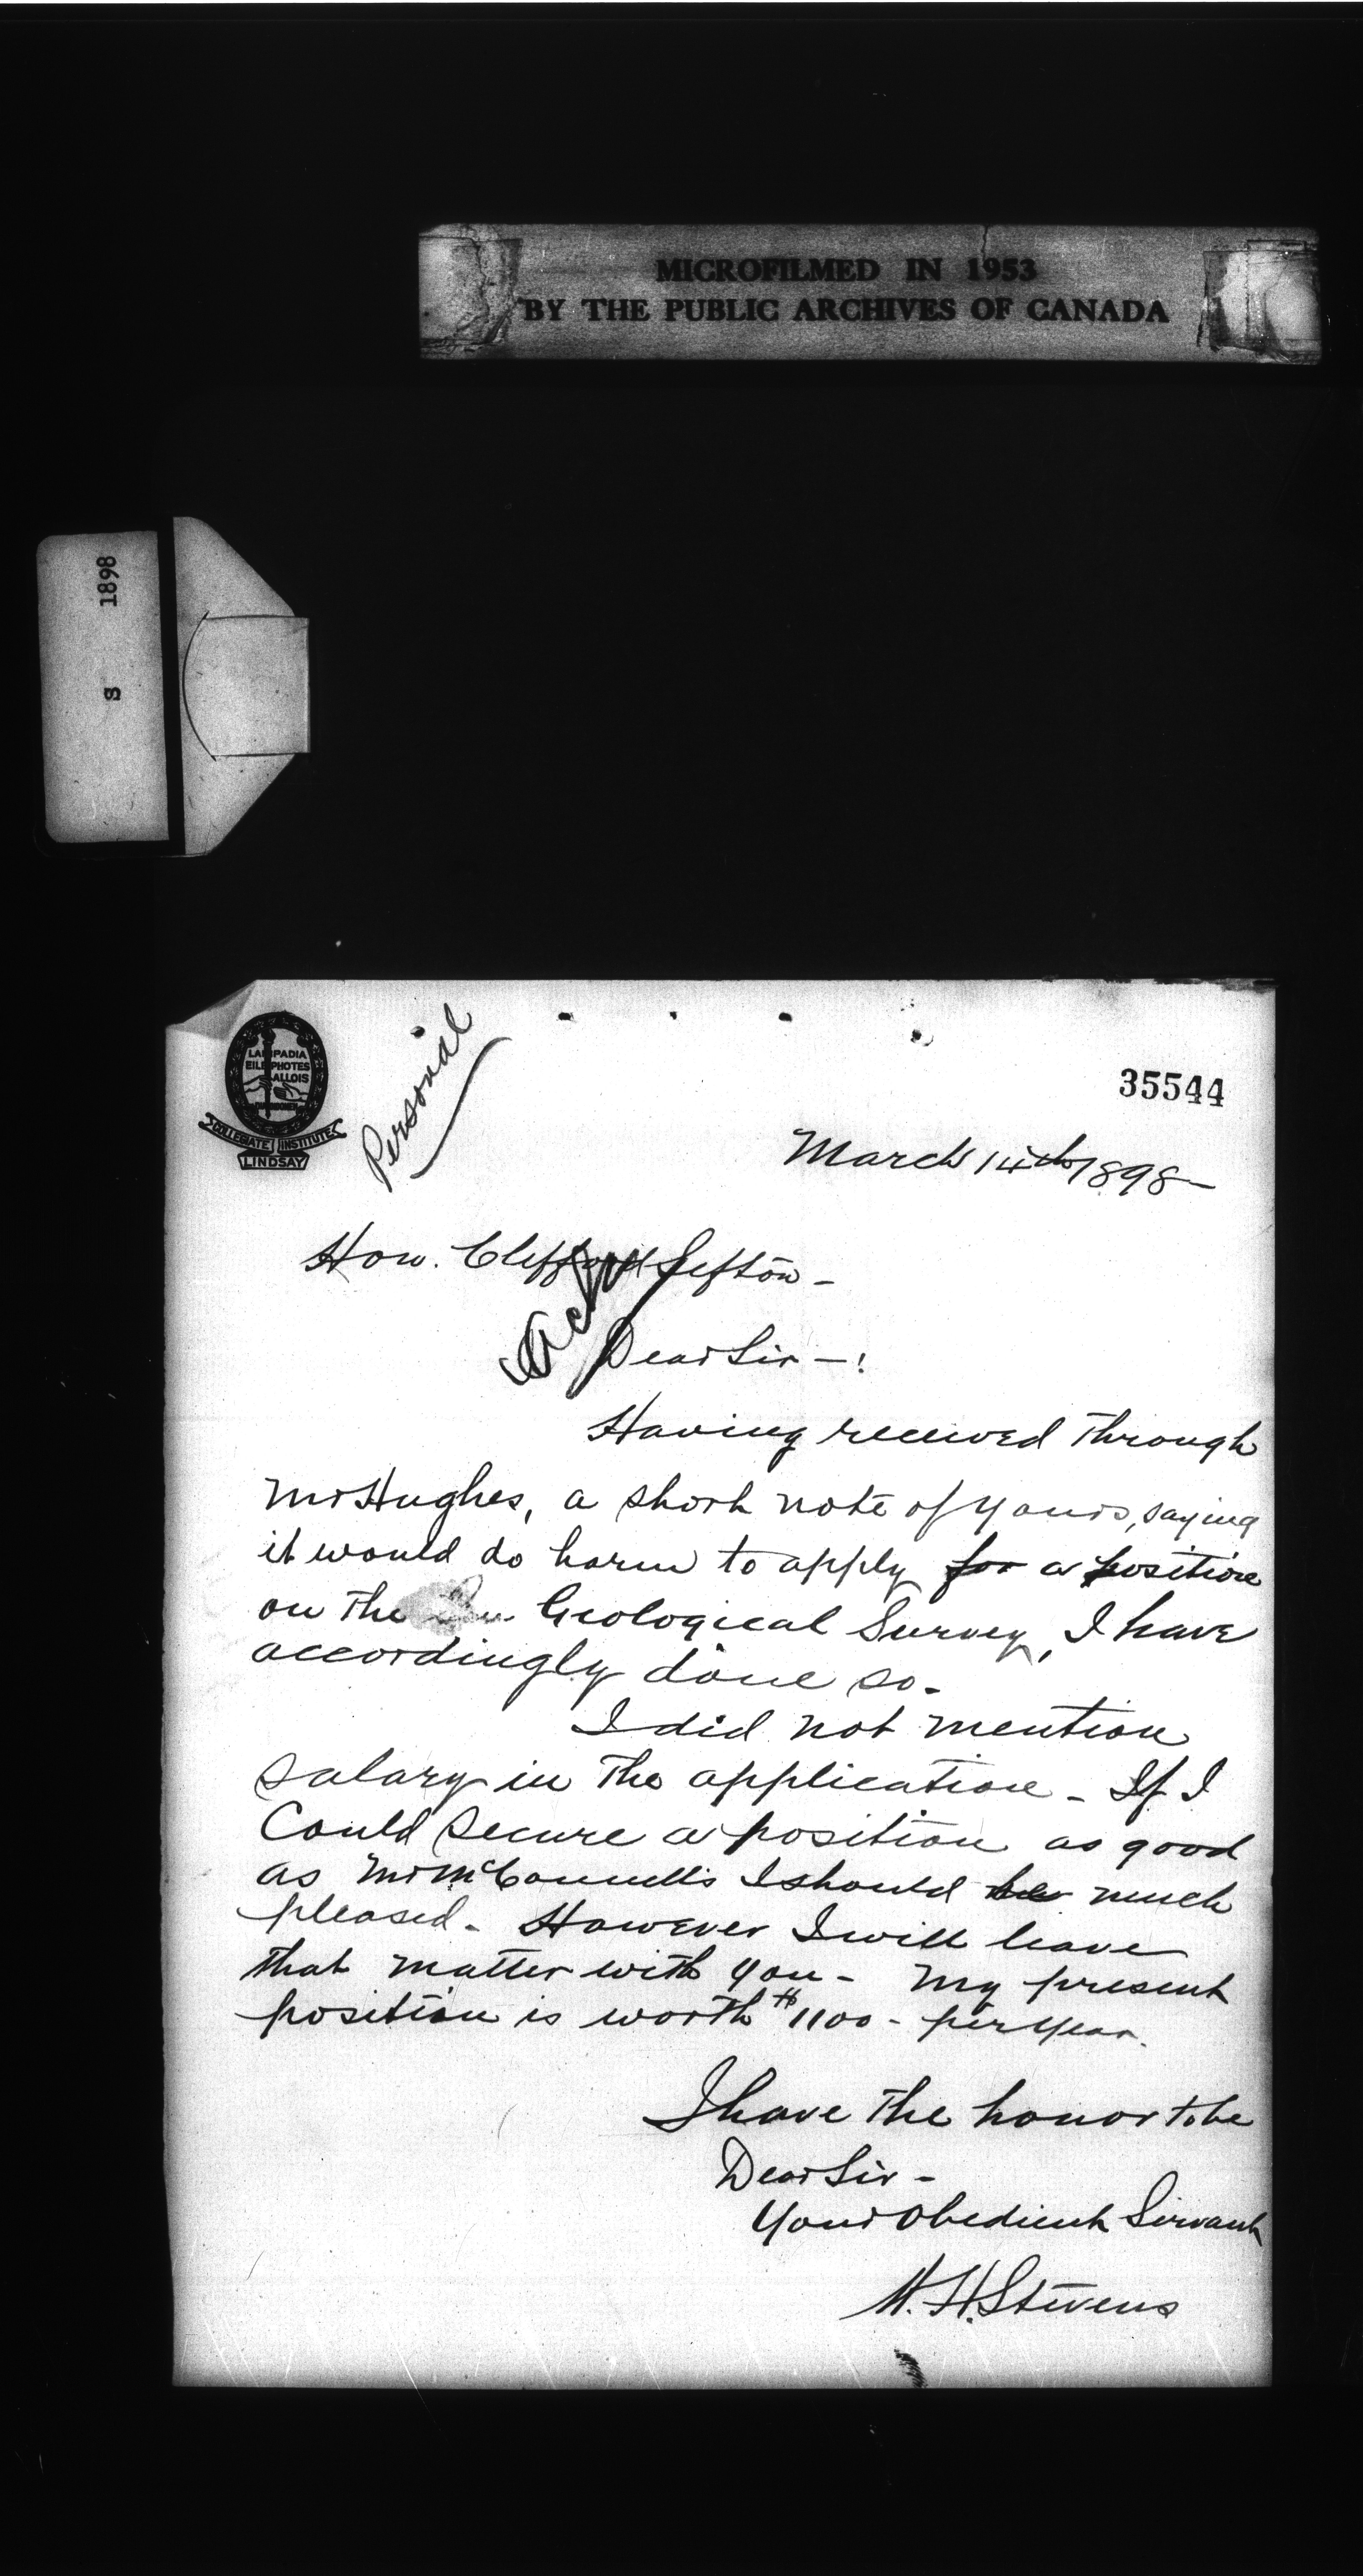 MICROFILMED IN 1953
BY THE PUBLIC ARCHIVES OF CANADA
S 1898
LAMPADIA
EILEPHOTES
ALLOIS
COLLEGIATE INSTITUTE
LINDSAY
Personal
35544
March 14th 1898-
Hon. Clifford Sifton-
Ack
Dear Sir-!
Having received through
Mr Hughes, a short note of yours, saying
it would do harm to apply for a position
on the Geological Survey, I have
accordingly done so.
I did not mention
salary in the application - If I
Could secure a position as good
as Mr McConnell's I should be much
pleased. However I will leave
that matter with you - My present
position is worth $1100 - per year.
I have the honor to be
Dear Sir -
Your Obedient Servant
W. H. Stevens